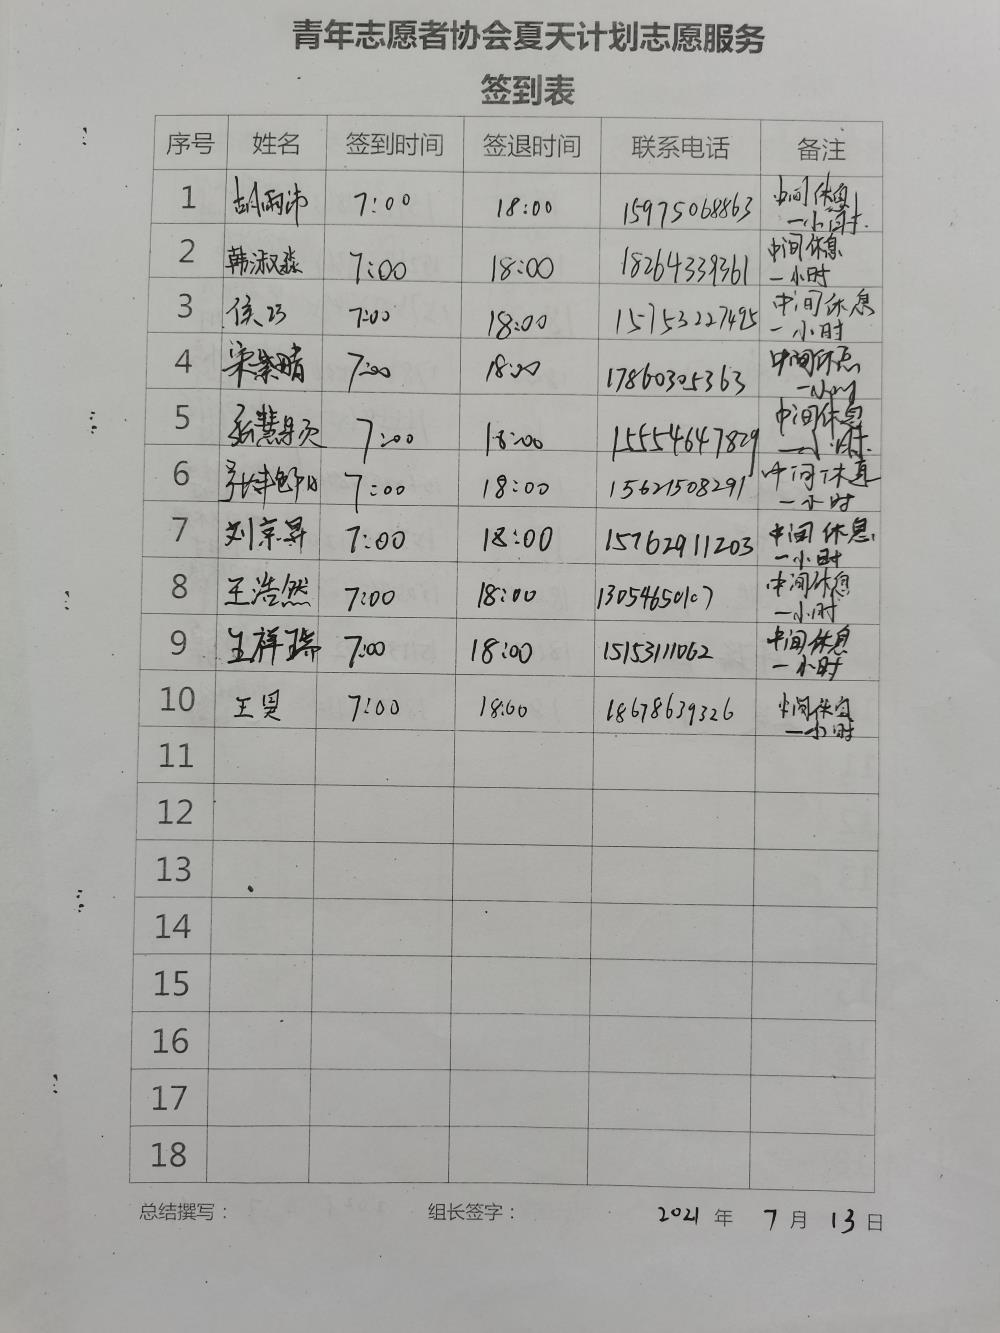 青年志愿者协会夏天计划志愿服务
签到表
序号 姓名 签到时间 签退时间 联系电话 备注
1 胡雨沛 7:00 18:00 15975068863 中间休息一小时
2 韩淑淼 7:00 18:00 18264339361 中间休息一小时
3 侯巧 7:00 18:00 15753227495 中间休息一小时
4 宋紫晴 7:00 18:00 17860305363 中间休息一小时
5 张慧 7:00 18:00 15554647829 中间休息一小时
6 7:00 18:00 15621508291 中间休息一小时
7 刘京昇 7:00 18:00 15762911203 中间休息一小时
8 王浩然 7:00 18:00 13054650107 中间休息一小时
9 王祥瑞 7:00 18:00 15153111062 中间休息一小时
10 王昊 7:00 18:00 18678639326 中间休息一小时
11
12
13
14
15
16
17
18
总结撰写： 组长签字： 2021 年 7 月 13 日